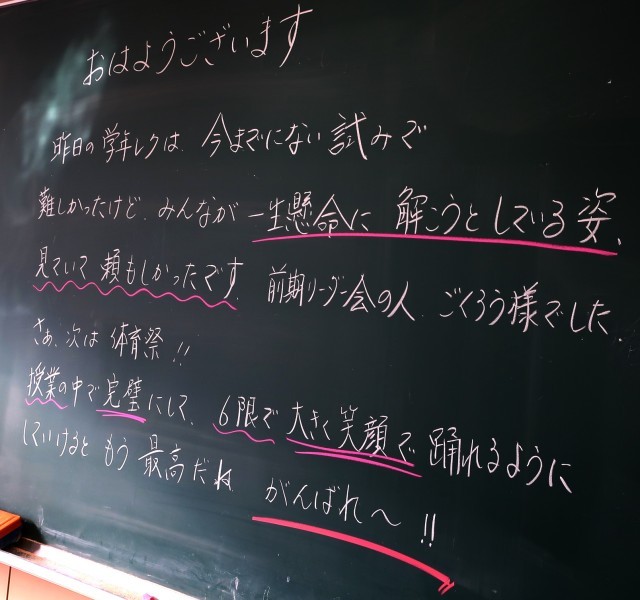 おはようございます
昨日の学年レクは、今までにない試みで
難しかったけど、みんなが一生懸命に解こうとしている姿、
見ていて頼もしかったです。前期リーダー会の人、ごくろう様でした。
さぁ、次は体育祭!!
授業の中で完璧にして、6限で大きく笑顔で踊れるように
していけるともう最高だね。がんばれ〜!!